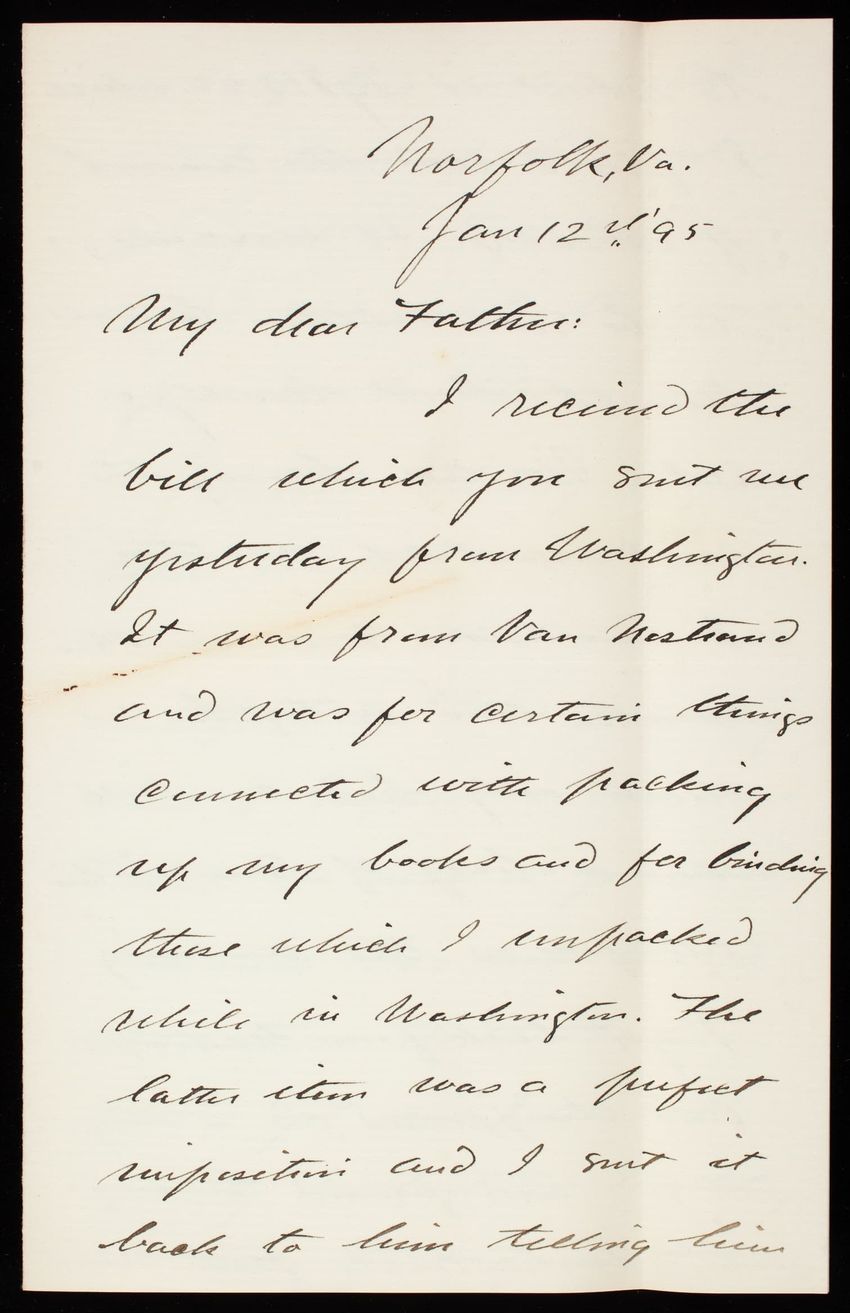 Norfolk, Va.
Jan 12th '95
My dear Father:
I received the
bill which you sent me
yesterday from Washington.
It was from Van Nostrand
and was for certain things
connected with packing
up my books and for binding
those which I unpacked
while in Washington. The
latter item was a perfect
imposition and I sent it
back to him telling him